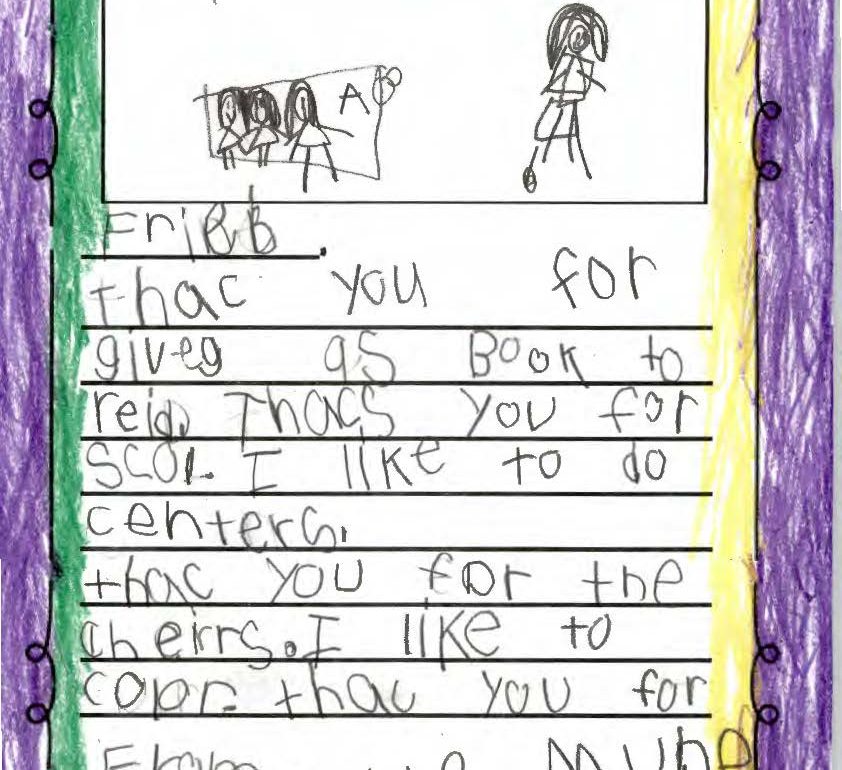 A
FriBb.
thac you for
giveg as Book to
reid. Thacs you for
scol. I like to do
centers.
thac you for the
cherrs. I like to
color. thac you for
From